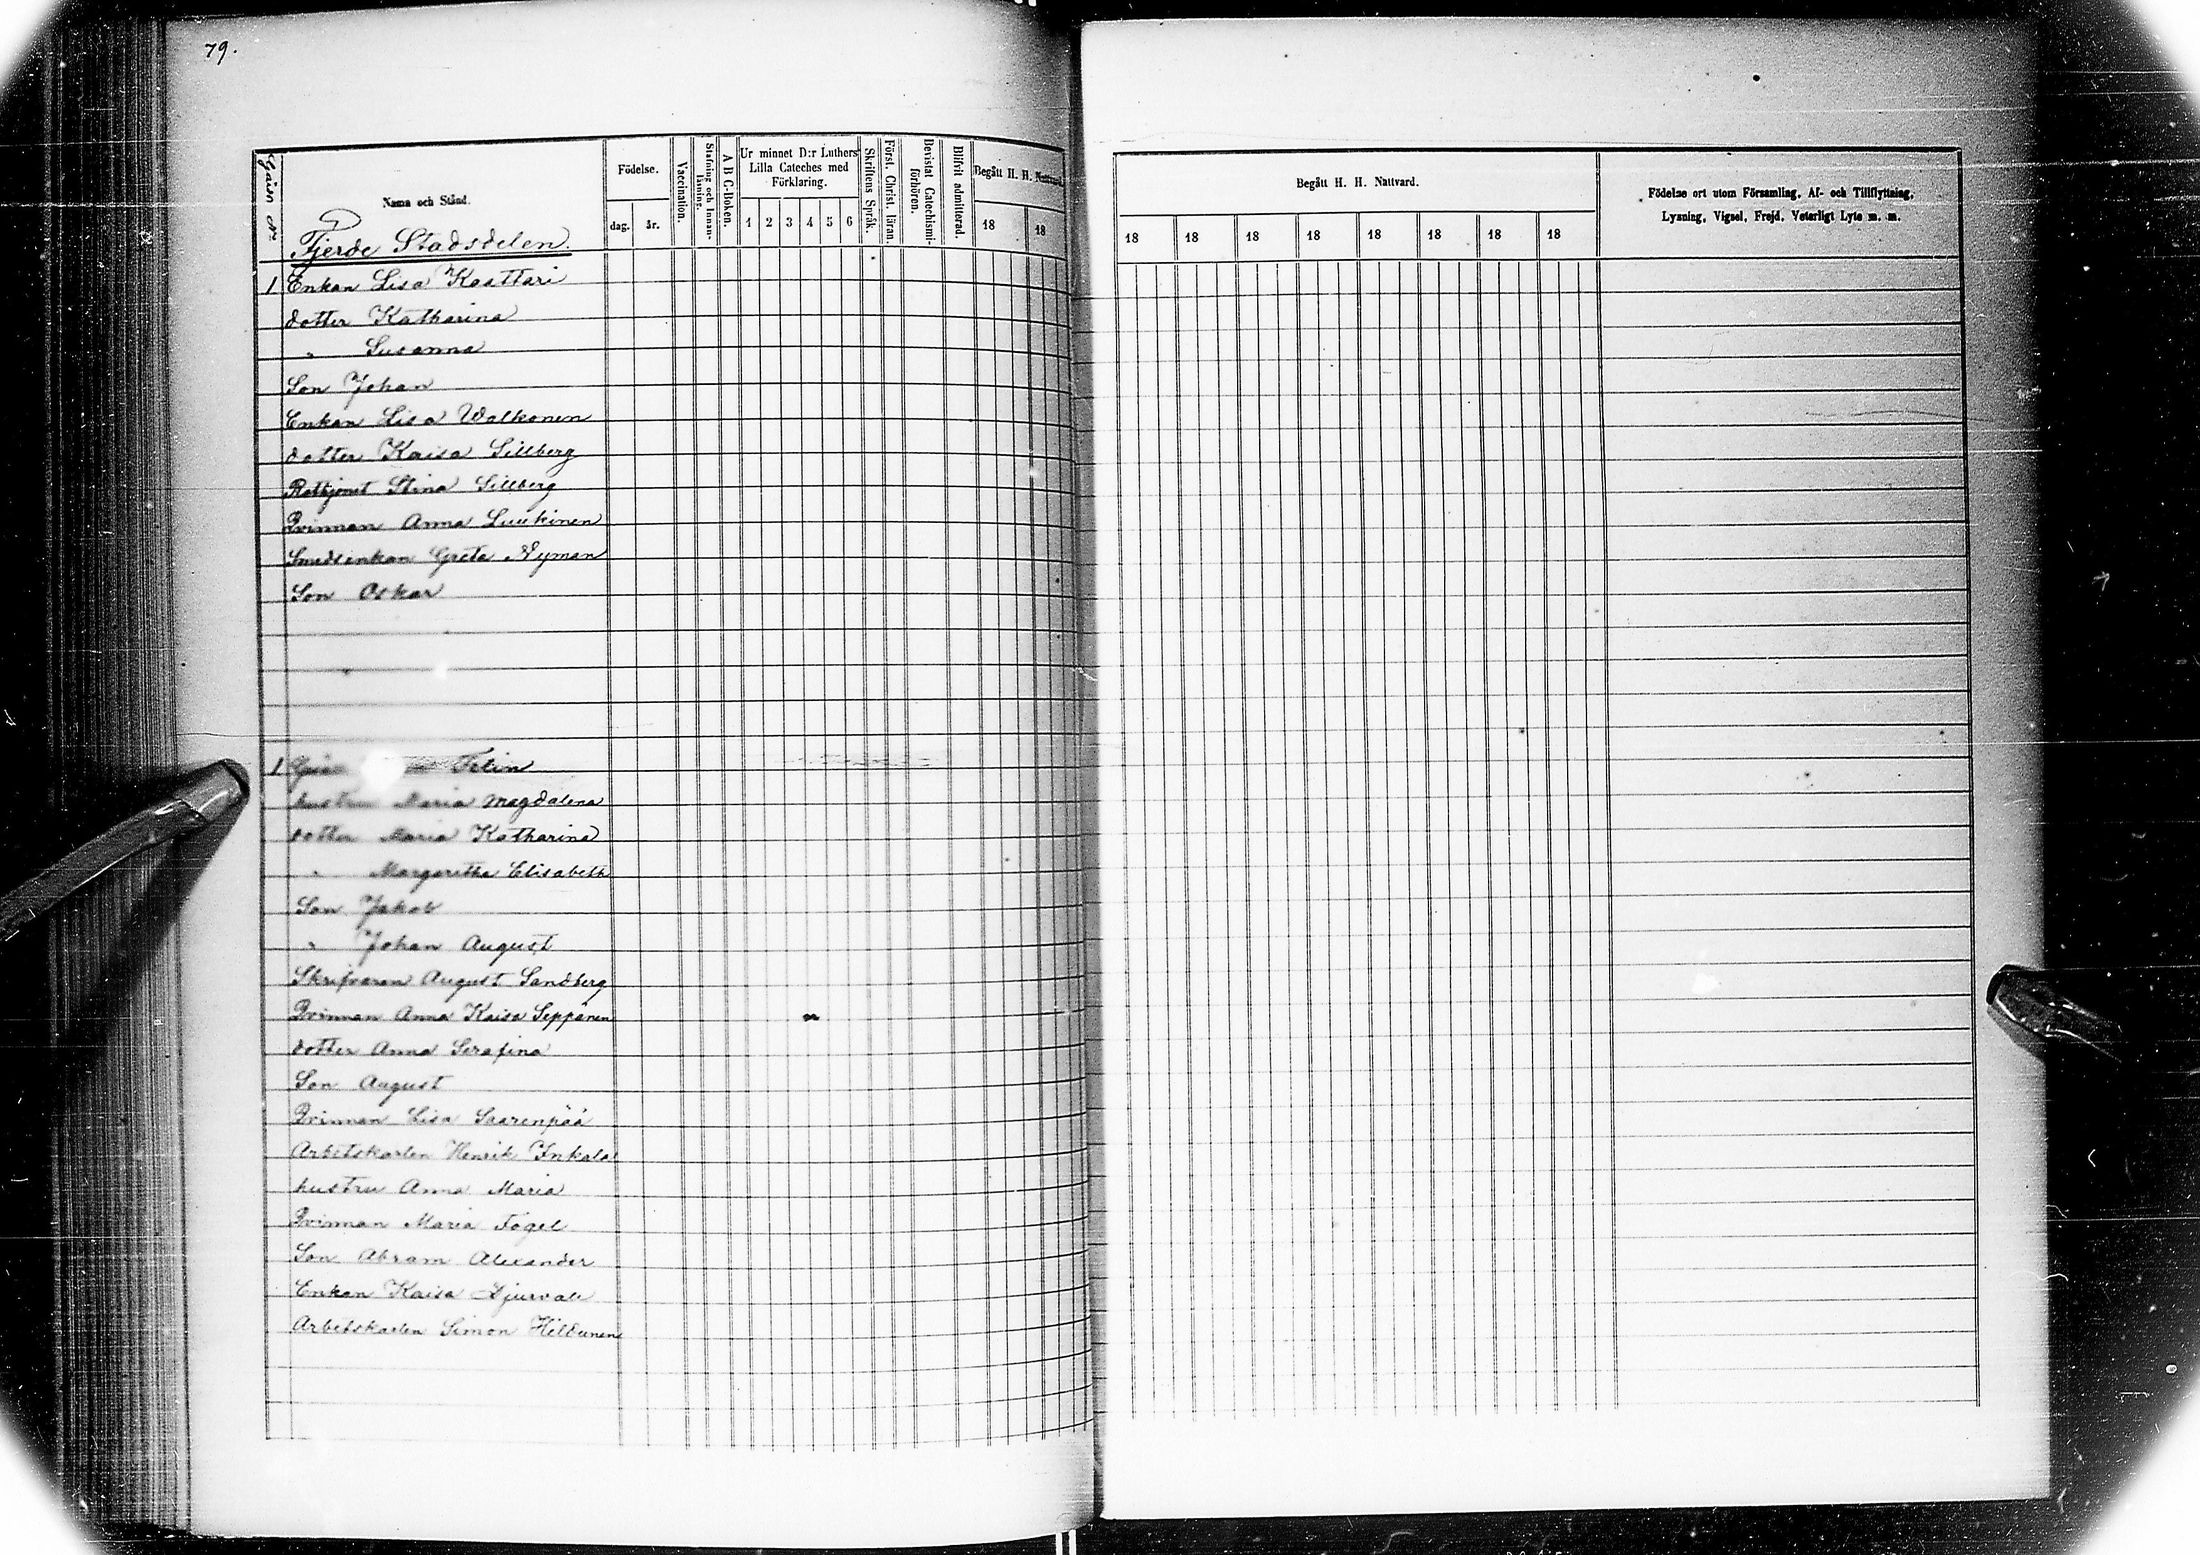 79.
Gåsn Nr
Namn och Stånd.
Födelse.
dag.
år.
Vaccination.
Stafning och Innanläsning.
A B C-Boken.
Ur minnet D:r Luthers
Lilla Cateches med
Förklaring.
1 2 3 4 5 6
Skriftens Språk.
Först. Christ. läran.
Bevistat Catechismiförhören.
Blifvit admitterad.
Begått H. H. Nattvard.
18 18
Fjerde Stadsdelen.
1 Enkan Lisa Kaattari
dotter Katharina
" Susanna
Son Johan
Enkan Lisa Walkonen
dotter Kaisa Sillberg
Rothjonet Stina Sillberg
Qvinnan Anna Luukinen
Smedsenkan Greta Nyman
Son Oskar
1 Felin
hustru Maria Magdalena
dotter Maria Katharina
" Margaretha Elisabeth
Son Jakob
" Johan August
Skrifvaren August Sandberg
Qvinnan Anna Kaisa Seppänen
dotter Anna Serafina
Son August
Qvinnan Lisa Saarenpää
Arbetskarlen Henrik Inkala
hustru Anna Maria
Qvinnan Maria Fogel
Son Abram Alexander
Enkan Kaisa
Arbetskarlen Simon Hiltunen
Begått H. H. Nattvard.
18 18 18 18 18 18 18 18
Födelse ort utom Församling, Af- och Tillflyttning,
Lysning, Vigsel, Frejd, Veterligt Lyte m. m.